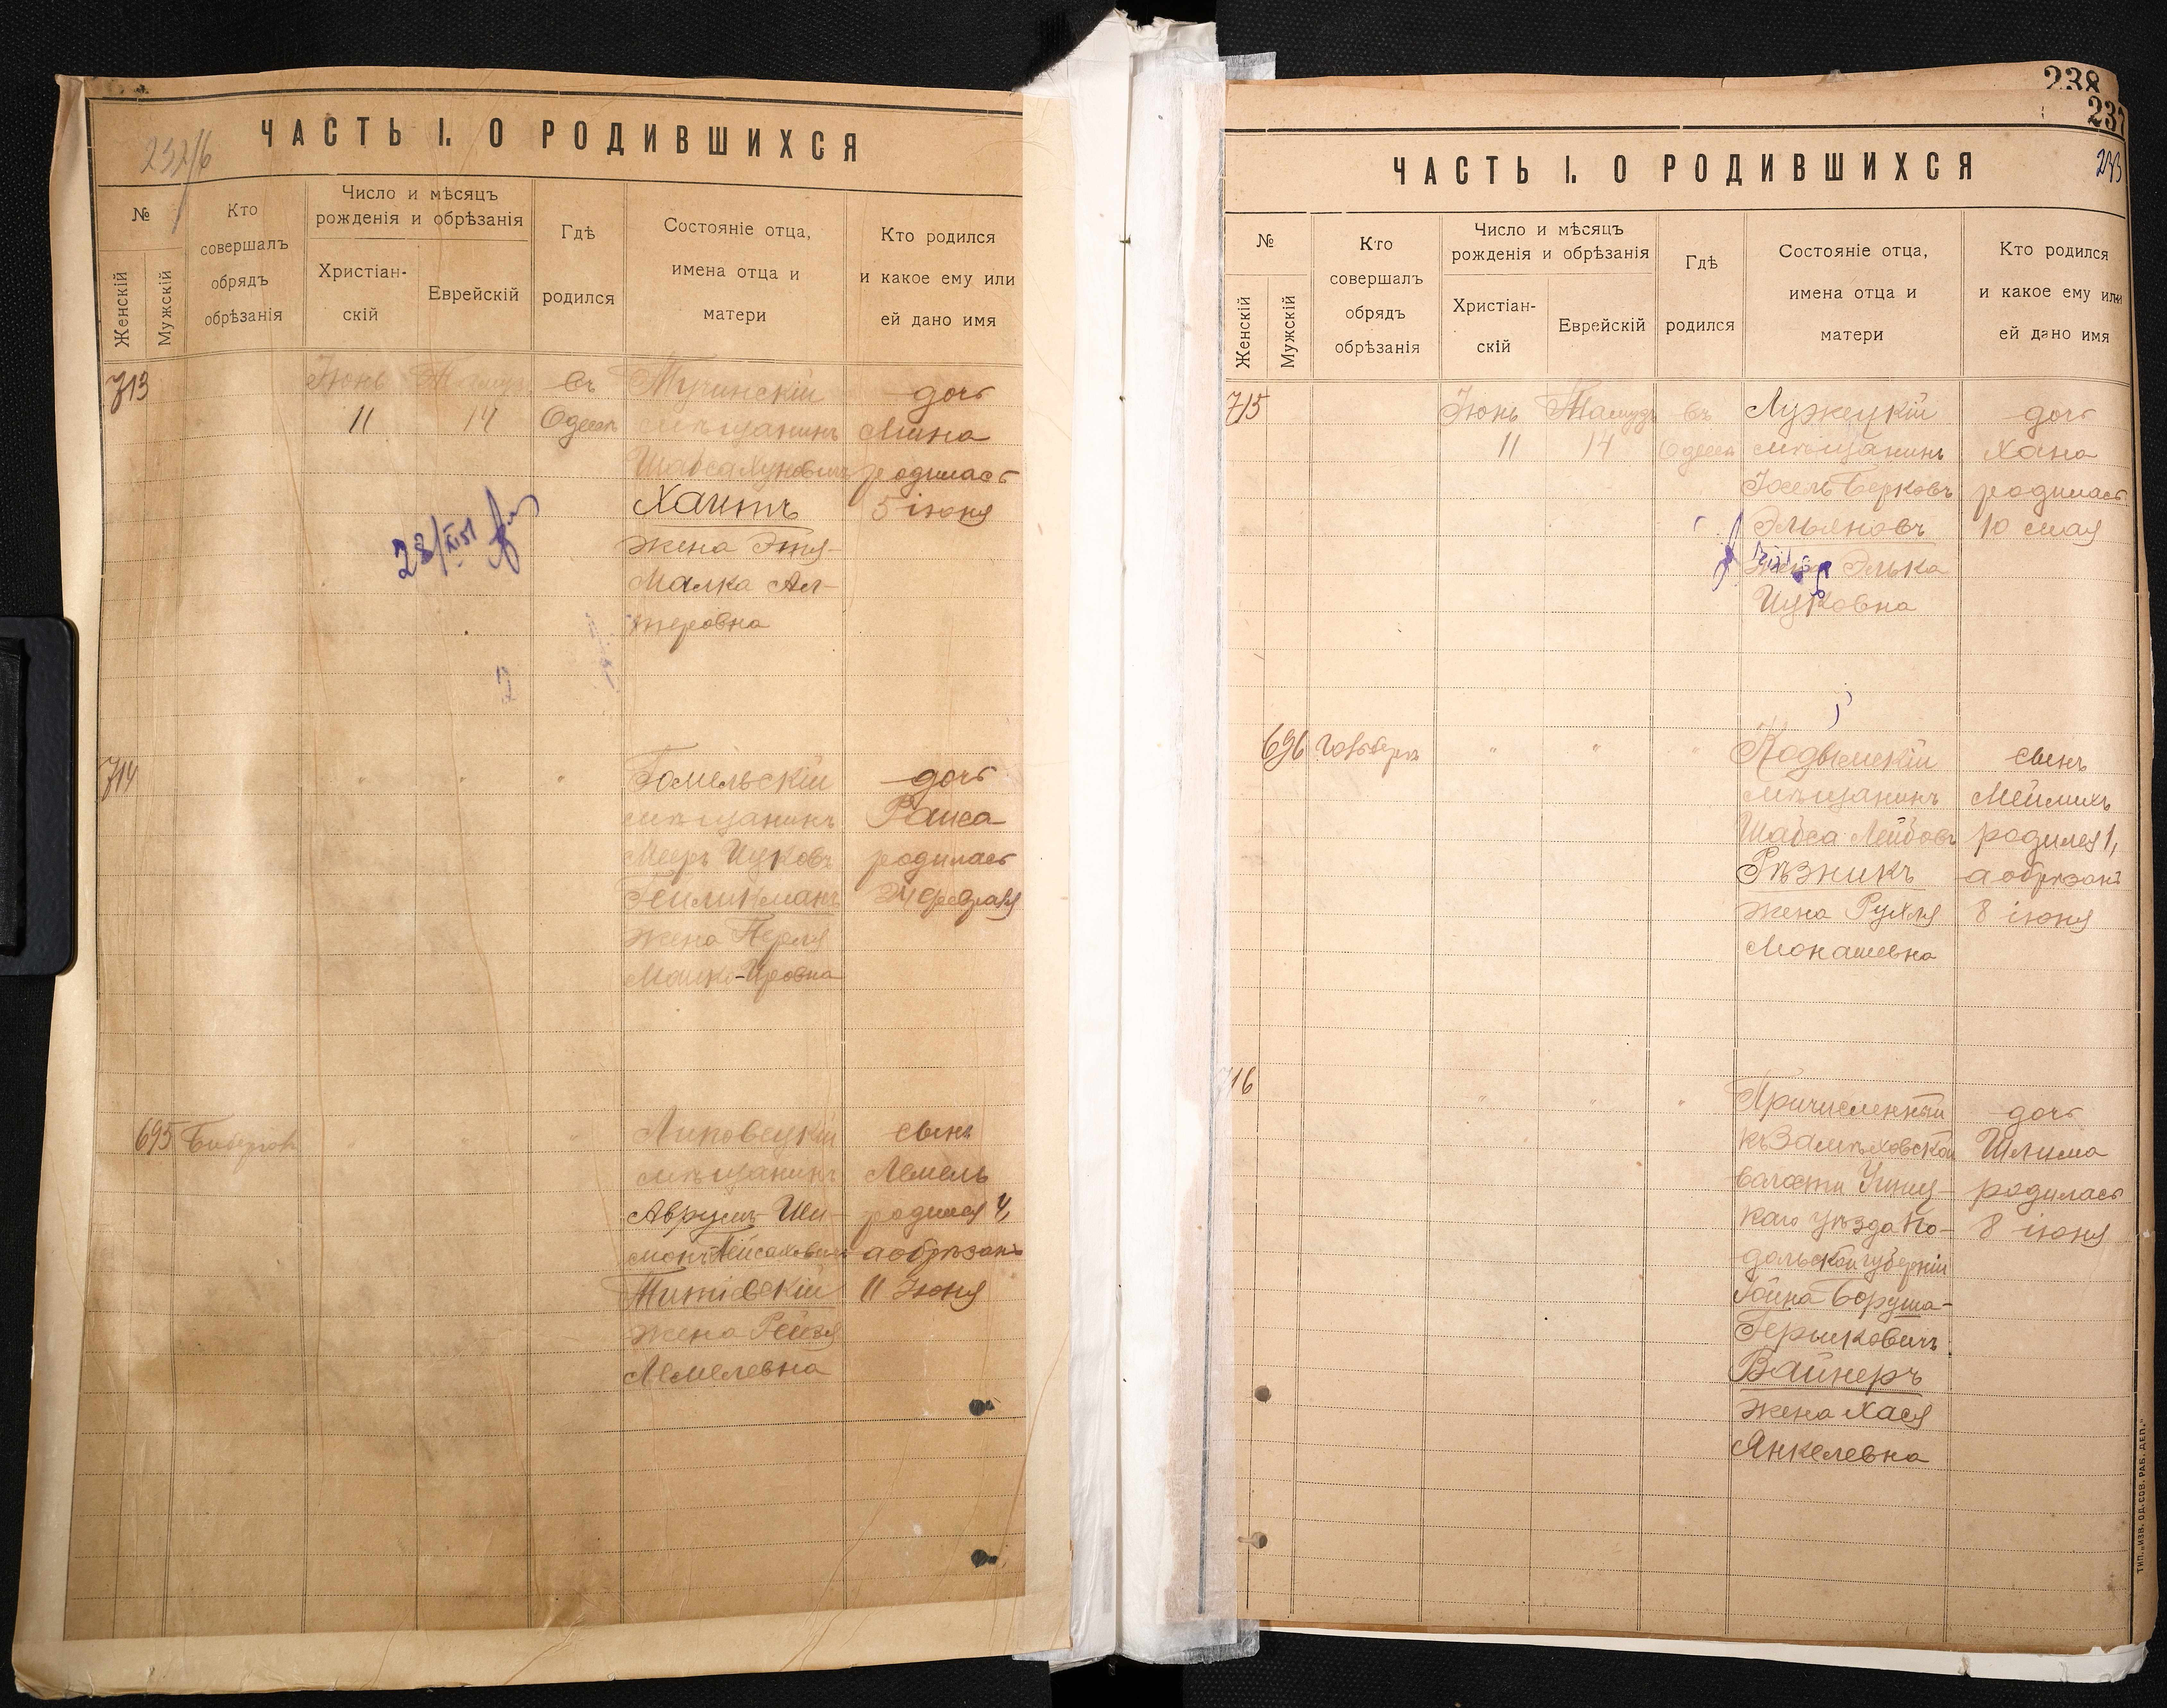 ЧАСТЬ I. О РОДИВШИХСЯ
№
Женскій
Мужскій
Кто
совершалъ
обрядъ
обрѣзанія
Число и мѣсяцъ
рожденія и обрѣзанія
Христіан-
скій
Еврейскій
Гдѣ
родился
Состояніе отца,
имена отца и
матери
Кто родился
и какое ему или
ей дано имя
713
Іюнь
11
14
въ
Одессѣ
мѣщанинъ
Хаитъ
жена Этя-
Малка Ал-
теровна
дочь
Мина
родилась
5 іюня
714
"
"
"
Гомельскій
мѣщанинъ
Мееръ Ицковъ
Гейликманъ
жена Перля
дочь
Раиса
родилась
24 февраля
695
Липовецкій
мѣщанинъ
Аврумъ-Ши-
жена Рейзя
Лемелевна
сынъ
Лемель
родился 4,
а обрѣзанъ
11 Іюня
238
237
233
ЧАСТЬ I. О РОДИВШИХСЯ
№
Женскій
Мужскій
Кто
совершалъ
обрядъ
обрѣзанія
Число и мѣсяцъ
рожденія и обрѣзанія
Христіан-
скій
Еврейскій
Гдѣ
родился
Состояніе отца,
имена отца и
матери
Кто родился
и какое ему или
ей дано имя
715
Іюнь
11
Тамузъ
14
въ
Одессѣ
Лужецкій
мѣщанинъ
Іосель Берковъ
Эльяновъ
жена Элька
Ицковна
дочь
Хана
родилась
10 мая
696
"
"
"
Кодымскій
мѣщанинъ
Шабса Лейбовъ
Рѣзникъ
жена Рухля
Монашевна
сынъ
Мейлихъ
родился 1,
а обрѣзанъ
8 іюня
716
"
"
"
Причисленный
волости Ушиц-
каго уѣзда По-
дольской губерніи
Іойна Боруша-
Гершковичъ
Вайнеръ
жена Хася
Янкелевна
дочь
Шлима
родилась
8 іюня
ТИП. „ИЗВ. ОД. СОВ. РАБ. ДЕП."